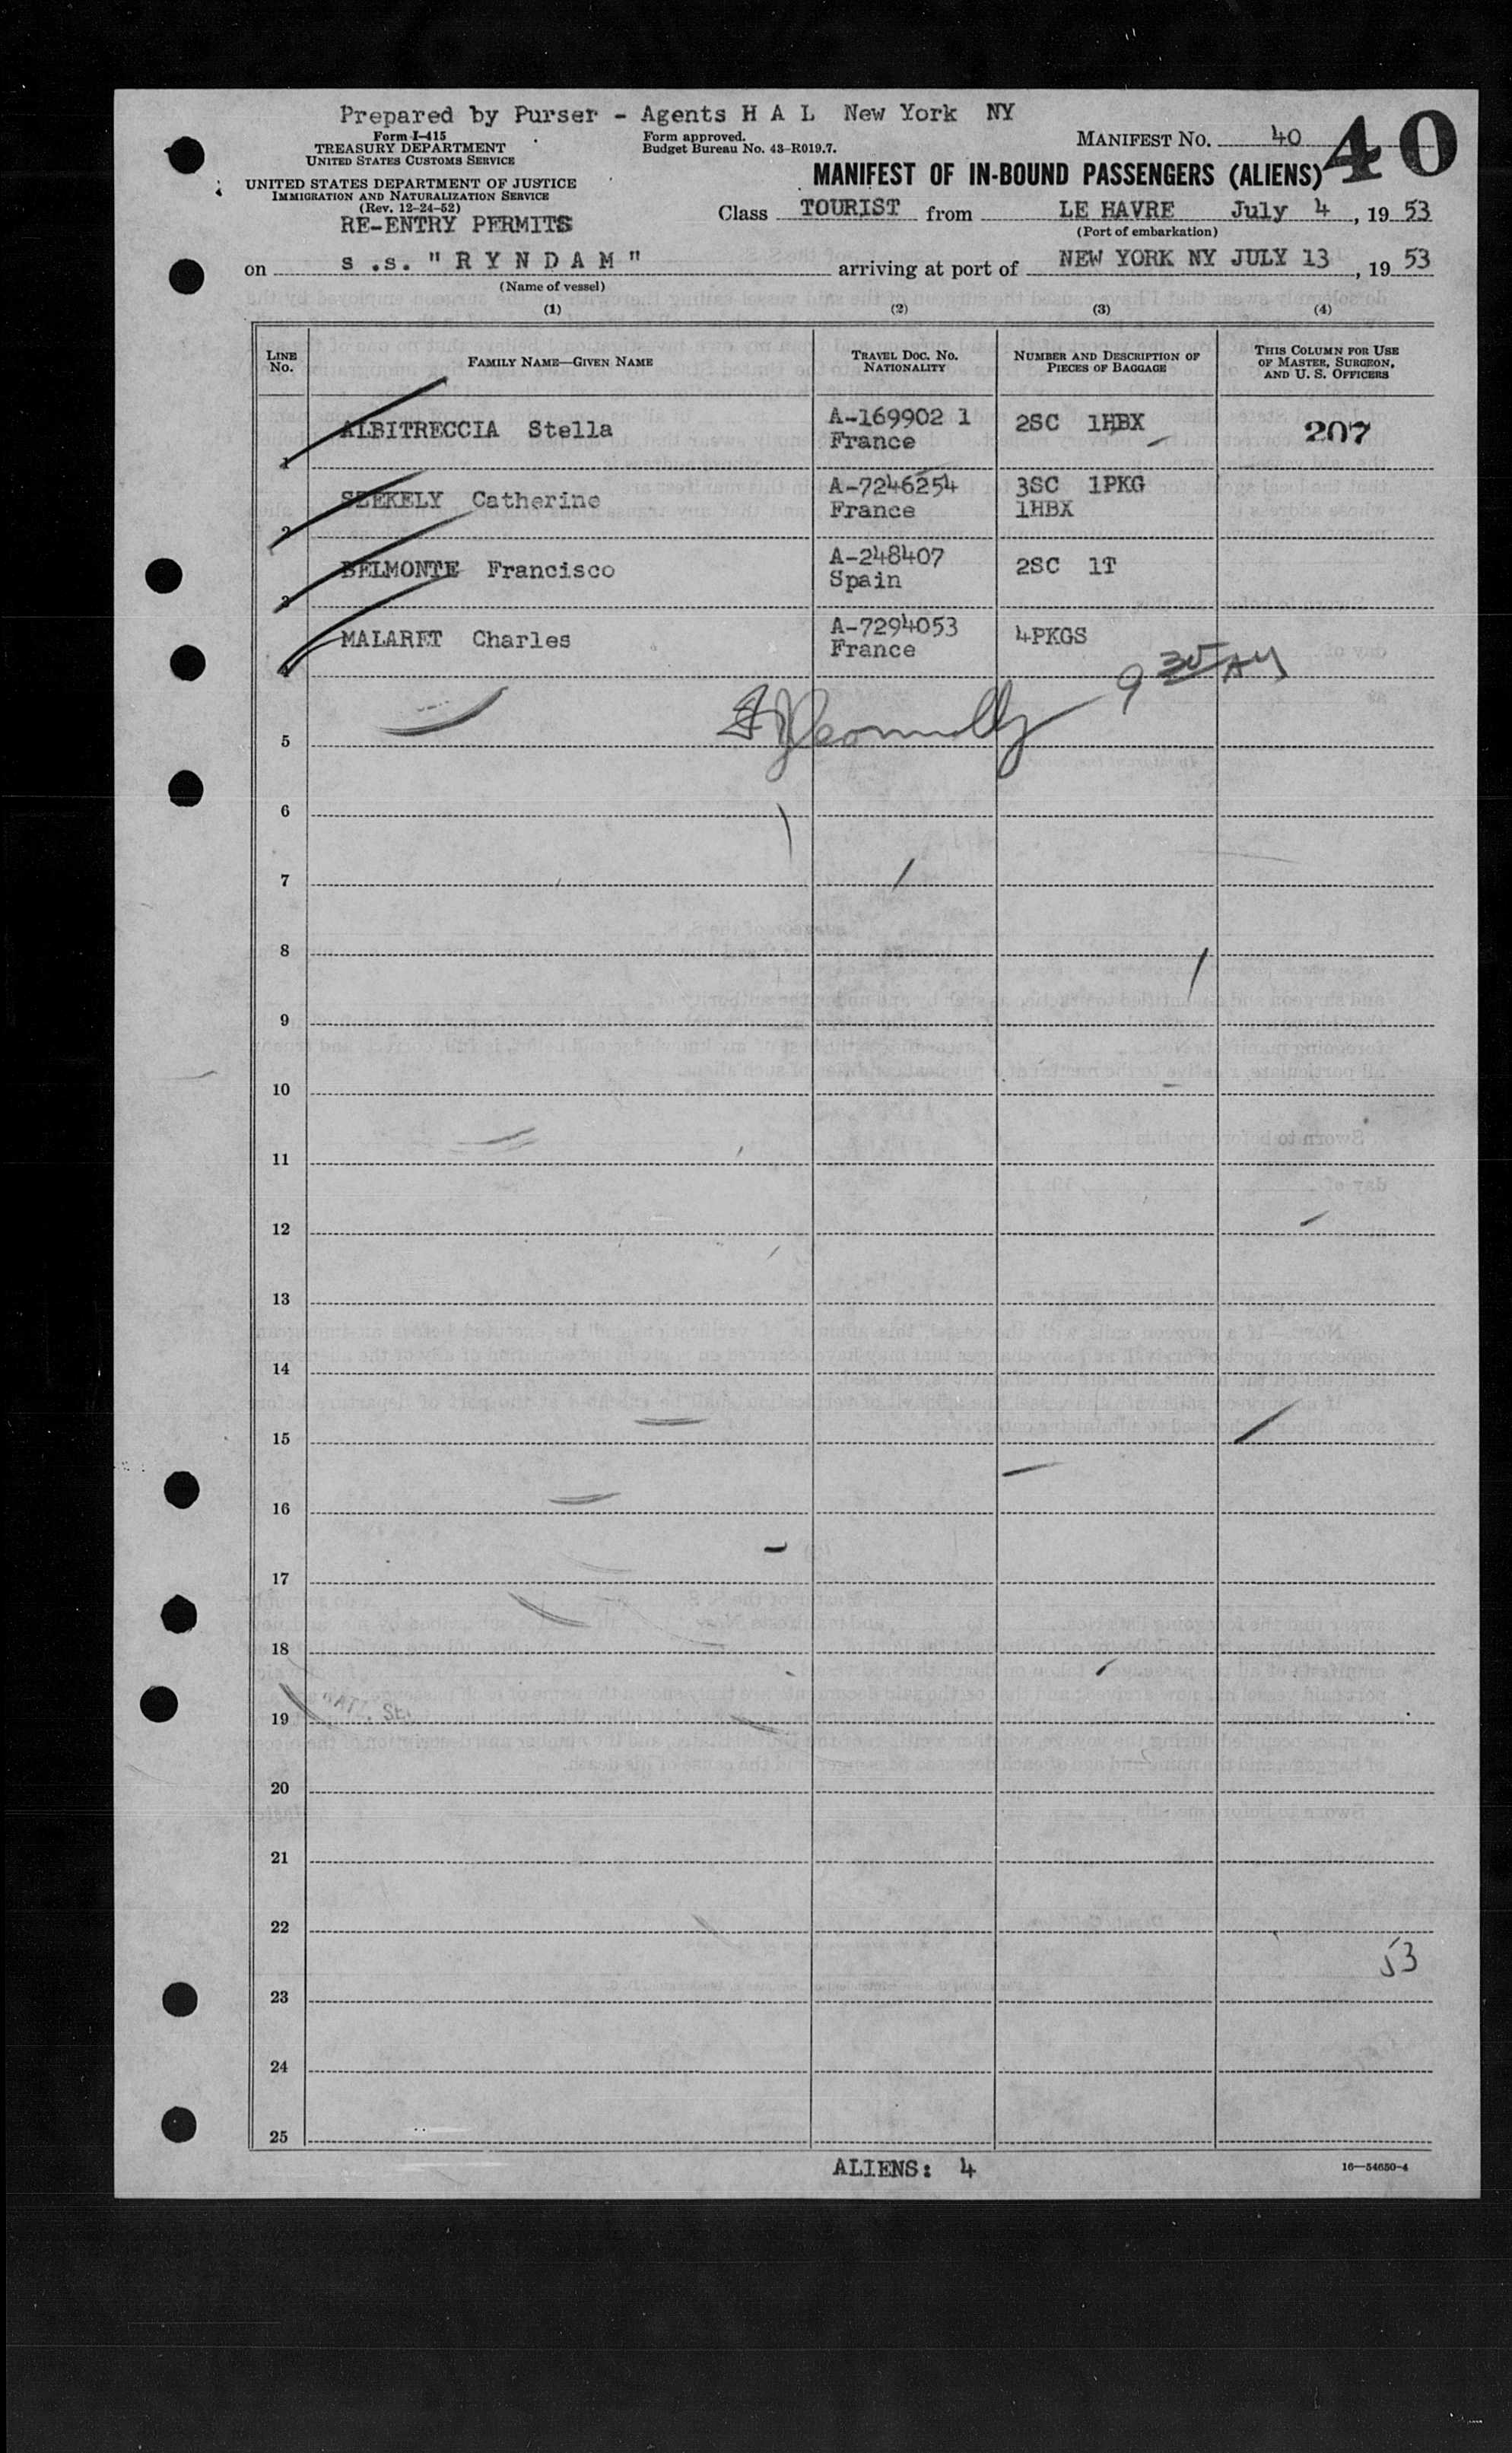 Prepared by Purser - Agents H A L New York NY
Form I-415
TREASURY DEPARTMENT
UNITED STATES CUSTOMS SERVICE
Form approved.
Budget Bureau No. 43-R019.7.
MANIFEST NO. 40
40
UNITED STATES DEPARTMENT OF JUSTICE
IMMIGRATION AND NATURALIZATION SERVICE
(Rev. 12-24-52)
MANIFEST OF IN-BOUND PASSENGERS (ALIENS)
RE-ENTRY PERMITS
Class TOURIST from LE HAVRE July 4, 1953
(Port of embarkation)
on s.s. " R Y N D A M " arriving at port of NEW YORK NY JULY 13, 1953
(Name of vessel)
(1) (2) (3) (4)
LINE NO. FAMILY NAME—GIVEN NAME TRAVEL DOC. NO. NATIONALITY NUMBER AND DESCRIPTION OF PIECES OF BAGGAGE THIS COLUMN FOR USE OF MASTER, SURGEON, AND U. S. OFFICERS
1 ALBITRECCIA Stella A-169902 1 France 2SC 1HBX 207
2 SZEKELY Catherine A-7246254 France 3SC 1PKG 1HBX
3 BELMONTE Francisco A-248407 Spain 2SC 1T
4 MALARET Charles A-7294053 France 4PKGS
9 30 AM
5
6
7
8
9
10
11
12
13
14
15
16
17
18
19
20
21
22
53
23
24
25
ALIENS: 4
16—54650-4